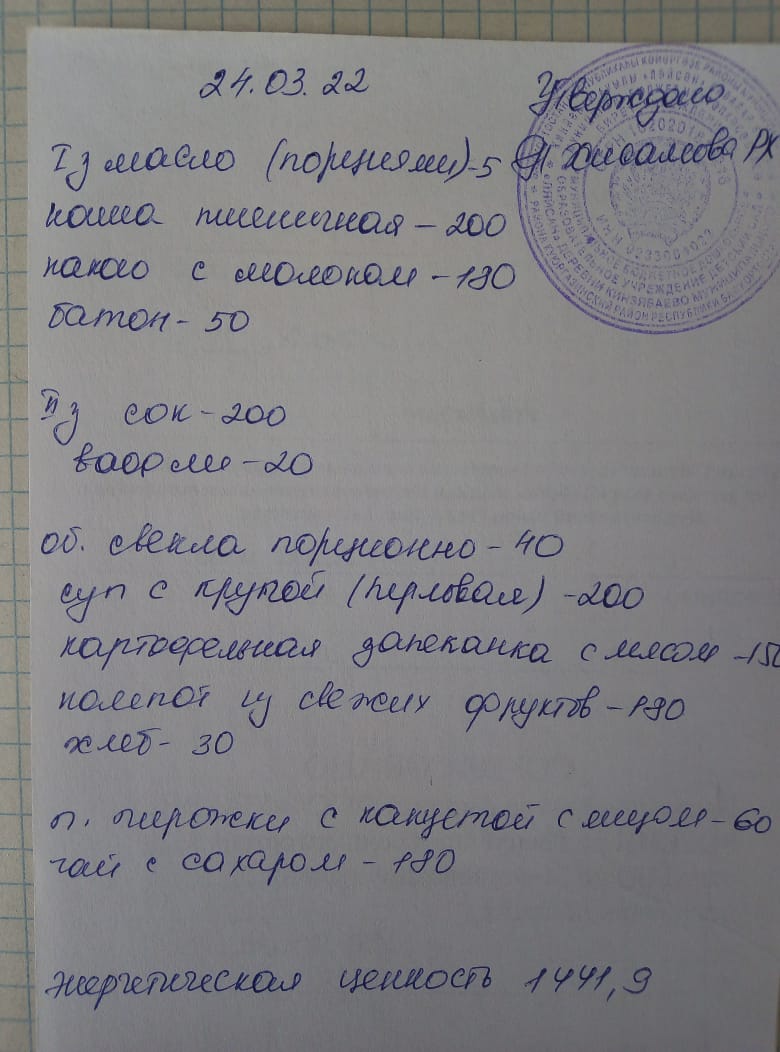 24.03.22
Утверждаю
Хисамова РХ
I з масло (порциями)-5
каша пшеничная-200
какао с молоком-180
батон-50
II з сок-200
вафли-20
об. свекла порционно-40
суп с крупой (перловая)-200
картофельная запеканка с мясом-150
компот из свежих фруктов-180
хлеб-30
п. пирожки с капустой с яицом-60
чай с сахаром-180
энергетическая ценность 1441,9